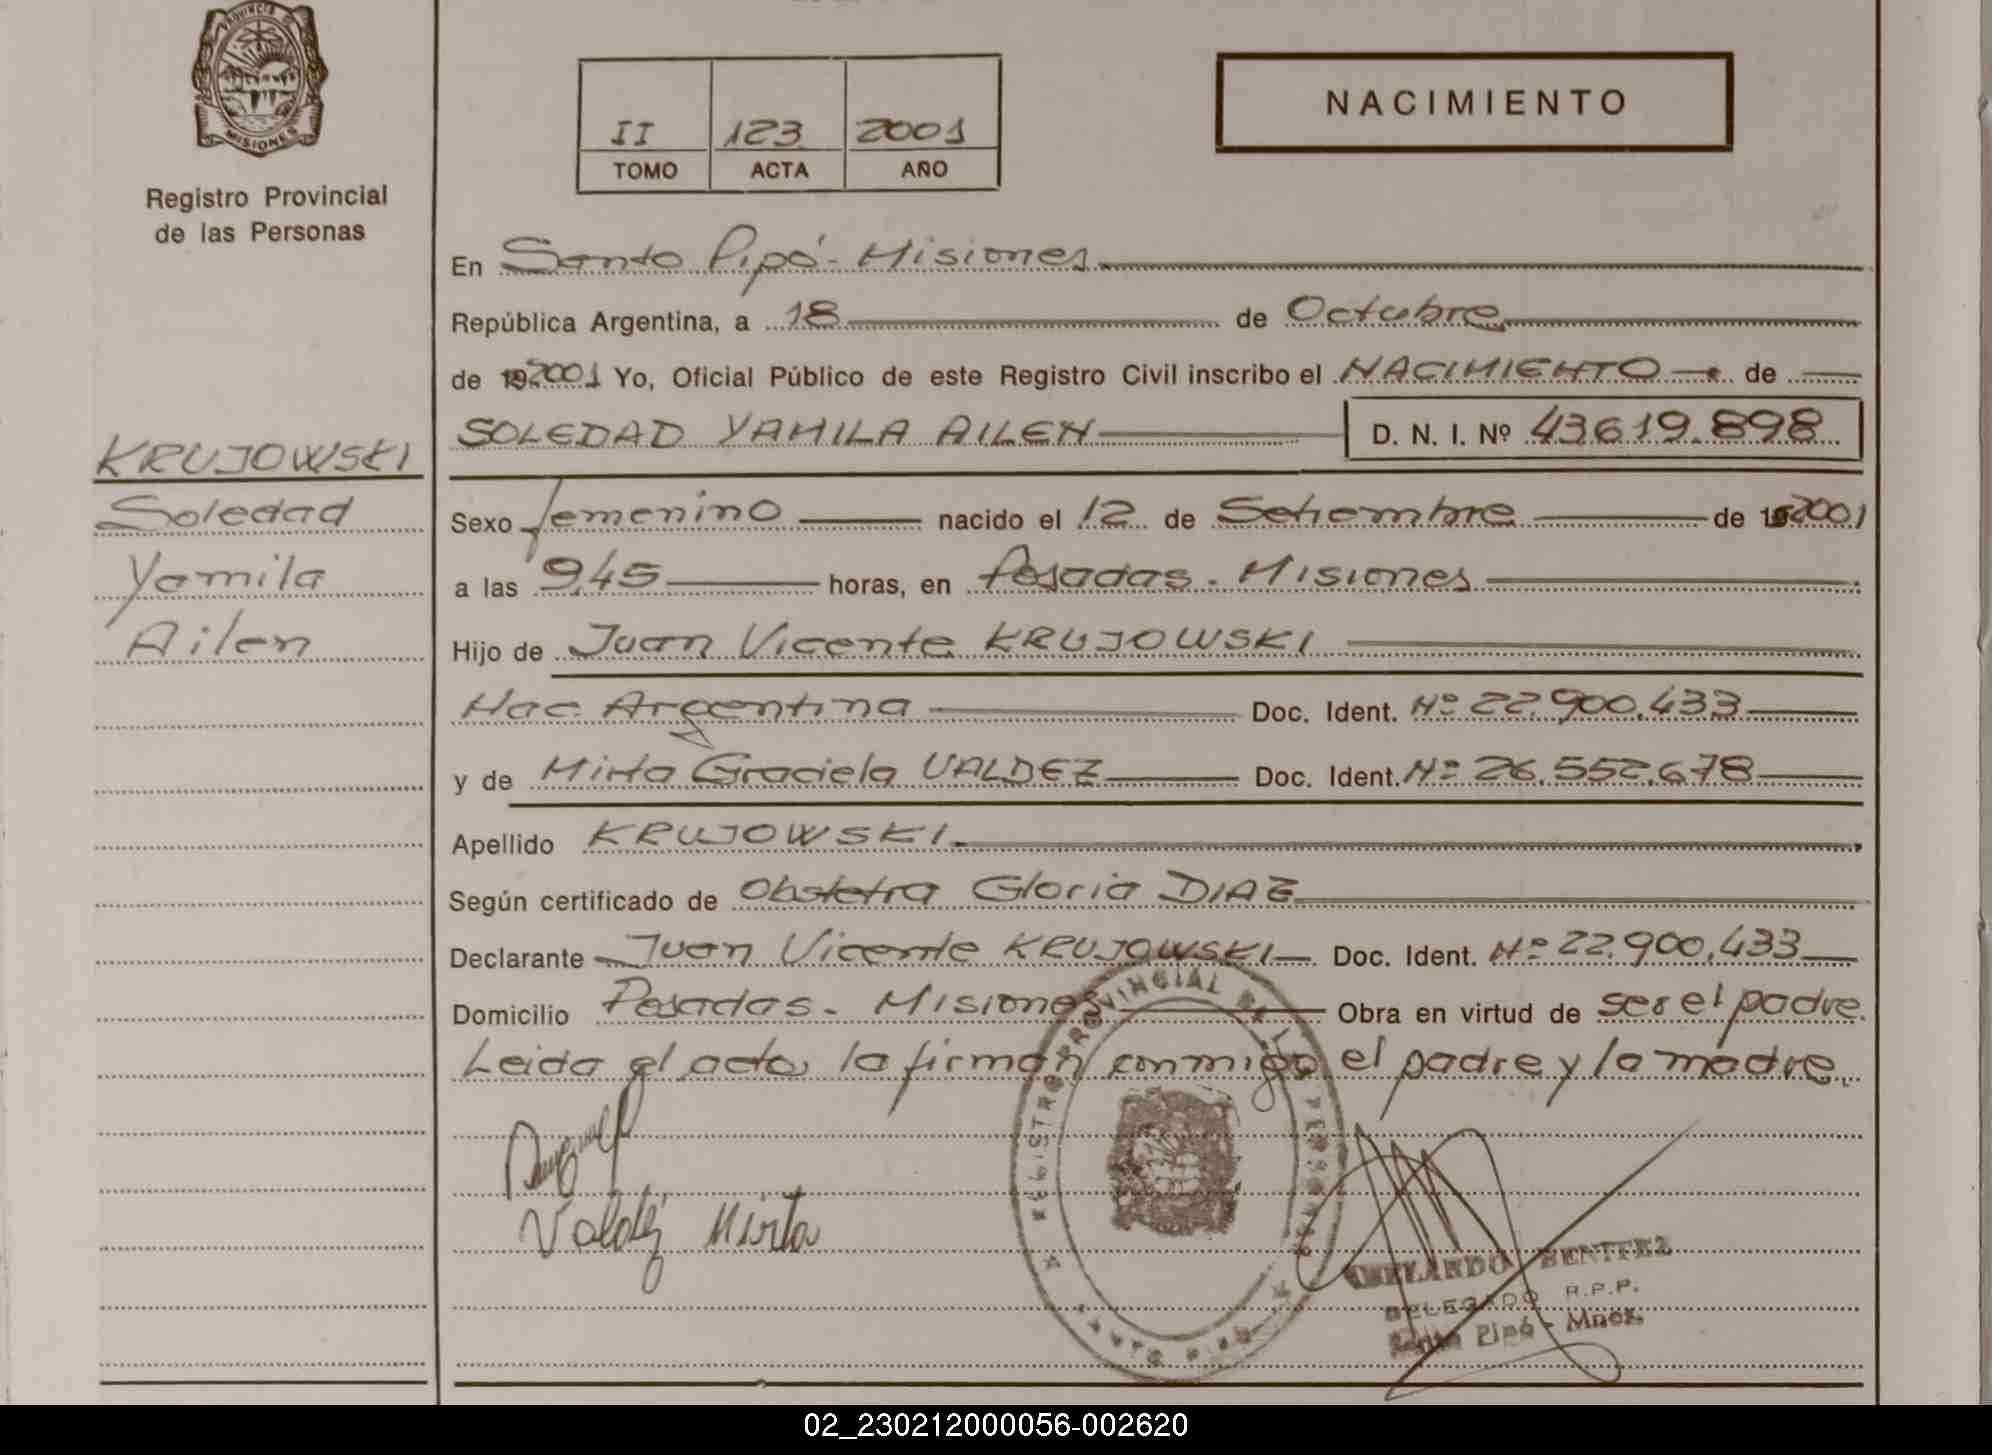 PROVINCIA DE
MISIONES
Registro Provincial
de las Personas
II 123 2001
TOMO ACTA AÑO
NACIMIENTO
En Santo Pipó - Misiones
República Argentina, a 18 de Octubre
de 192001 Yo, Oficial Público de este Registro Civil inscribo el NACIMIENTO de
SOLEDAD YAMILA AILEN D. N. I. Nº 43619.898
KRUJOWSKI
Soledad
Yamila
Ailen
Sexo femenino nacido el 12 de Setiembre de 192001
a las 9,45 horas, en Posadas - Misiones
Hijo de Juan Vicente KRUJOWSKI
Nac. Argentina Doc. Ident. Nº 22.900.433
y de Mirta Graciela VALDEZ Doc. Ident. Nº 26.552.678
Apellido KRUJOWSKI
Según certificado de Obstetra Gloria DIAZ
Declarante Juan Vicente KRUJOWSKI Doc. Ident. Nº 22.900.433
Domicilio Posadas - Misiones Obra en virtud de ser el padre
Leida el acta, la firman conmigo el padre y la madre.
Valdéz Mirta
REGISTRO PROVINCIAL DE LAS PERSONAS
SANTO PIPÓ
ABELARDO BENITEZ
DELEGADO R.P.P.
Santo Pipó - Mnes.
02_230212000056-002620